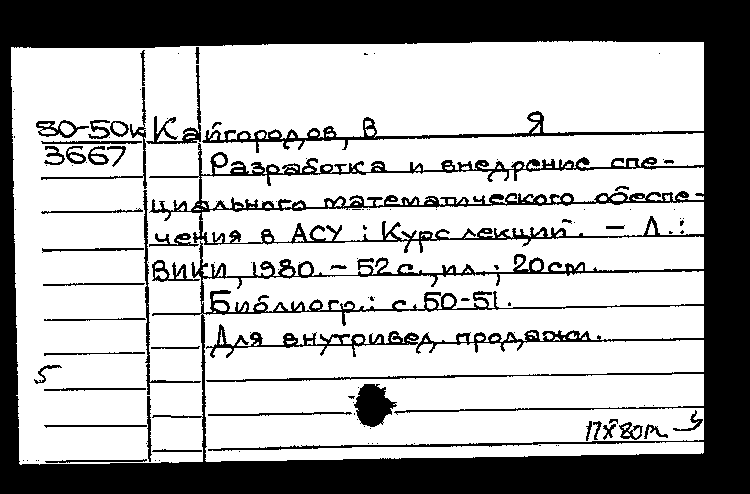 80-50к Кайгородов, В Я
3667 Разработка и внедрение спе-
циального математического обеспе-
чения в АСУ : Курс лекций. – Л.:
ВИКИ, 1980. – 52 с., ил.; 20 см.
Библиогр.: с. 50-51.
Для внутривед. продажи.
5